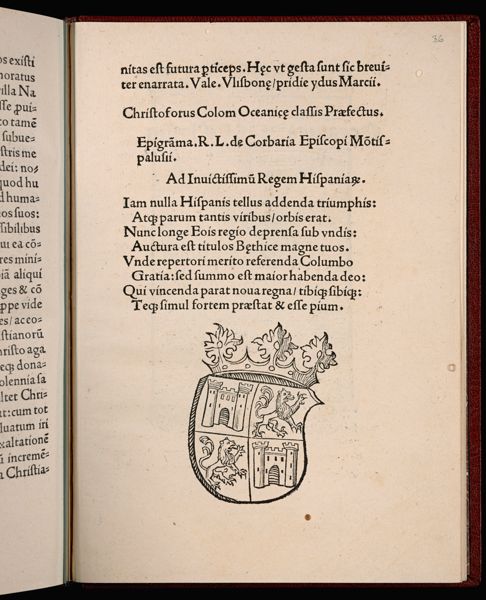 os existi
noratus
illa Na
sse ꝓui-
to tamē
subue-
stris me
dei: nos
quod hu
d huma-
eos suos:
sibilibus
ui ea cō-
res mini-
iā aliqui
ges & cō
ppe vide
es/ aceo-
stianorū
hristo aga
eqꝫ dona-
olennia sa
ltet Chri-
at: cum tot
luatum iri
xaltationē
ū incremē-
a Christia-
36
nitas est futura ꝑticeps. Hęc vt gesta sunt sic breui-
ter enarrata. Vale. Vlisbonę/ pridie ydus Marcii.
Christoforus Colom Oceanicę classis Præfectus.
Epigrāma. R. L. de Corbaria Episcopi Mōtis-
palusii.
Ad Inuictissimū Regem Hispaniaꝝ.
Iam nulla Hispanis tellus addenda triumphis:
Atqꝫ parum tantis viribus/ orbis erat.
Nunc longe Eois regio deprensa sub vndis:
Auctura est titulos Bęthice magne tuos.
Vnde repertori merito referenda Columbo
Gratia: sed summo est maior habenda deo:
Qui vincenda parat noua regna/ tibiqꝫ sibiqꝫ:
Teqꝫ simul fortem præstat & esse pium.